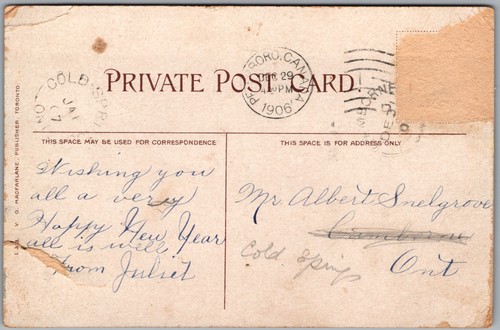 PRIVATE POST CARD.
PETERBORO, CANADA
DEC 29
PM
1906
COLD SPRI
JA 1
07
THIS SPACE MAY BE USED FOR CORRESPONDENCE
THIS SPACE IS FOR ADDRESS ONLY
MACFARLANE, PUBLISHER, TORONTO
Wishing you
all a very
Happy New Year
all is well
From Juliet
Mr. Albert Snelgrove
Camborne
Cold Springs
Ont